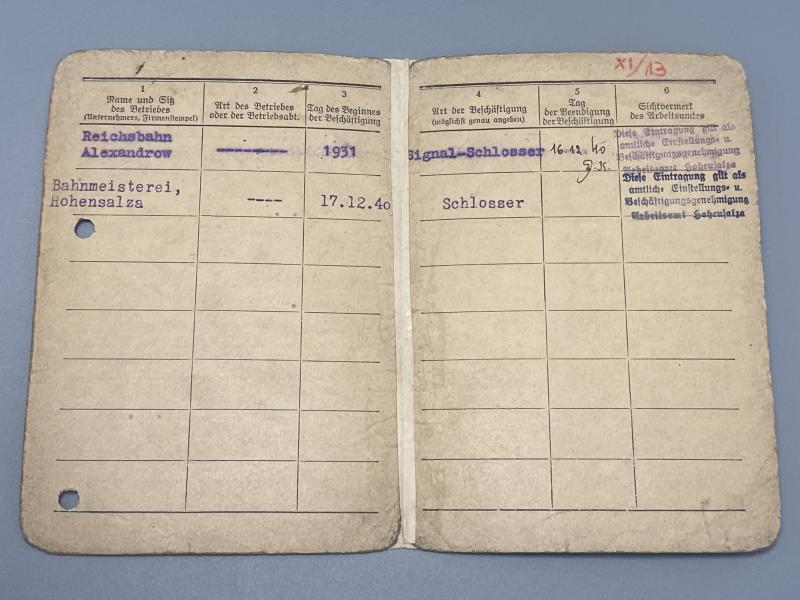 XI/13
1
Name und Sitz
des Betriebes
(Unternehmers, Firmenstempel)
2
Art des Betriebes
oder der Betriebsabt.
3
Tag des Beginnes
der Beschäftigung
4
Art der Beschäftigung
(möglichst genau angeben)
5
Tag
der Beendigung
der Beschäftigung
6
Sichtvermerk
des Arbeitsamtes
Reichsbahn
Alexandrow
---------
1931
Signal-Schlosser
16.12.40
Diese Eintragung gilt als
amtliche Einstellungs- u.
Beschäftigungsgenehmigung
Arbeitsamt Hohensalza
Bahnmeisterei,
Hohensalza
----
17.12.40
Schlosser
Diese Eintragung gilt als
amtliche Einstellungs- u.
Beschäftigungsgenehmigung
Arbeitsamt Hohensalza